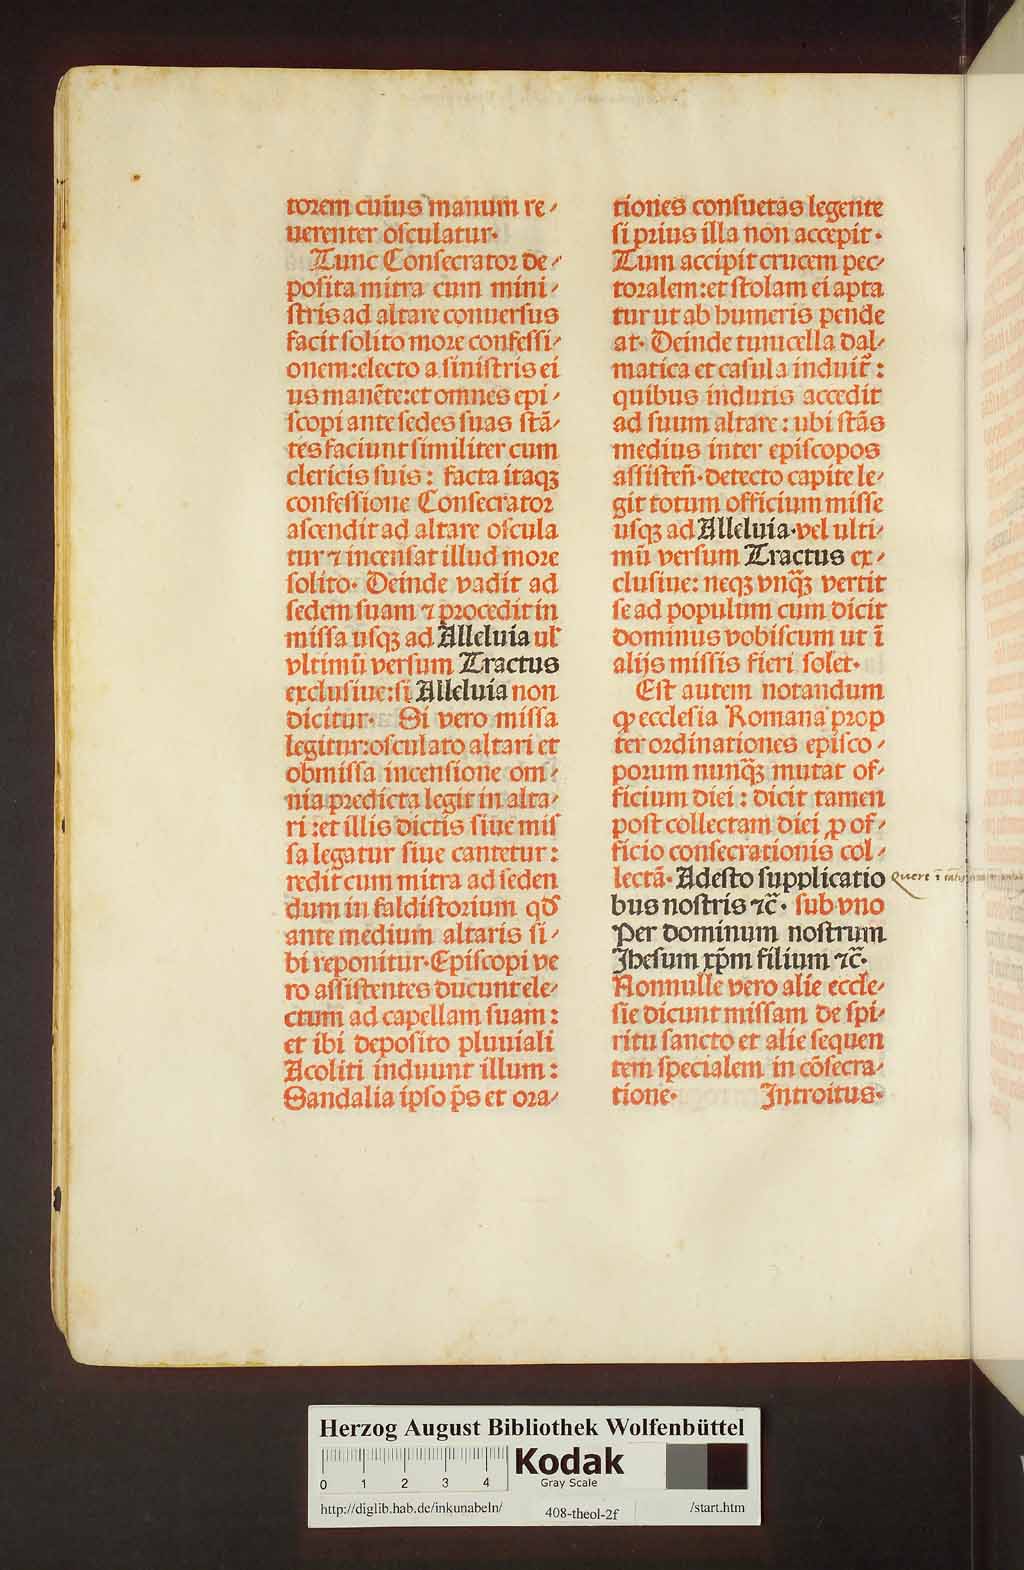 torem cuius manum re⸗
uerenter osculatur·
Tunc Consecrator de⸗
posita mitra cum mini⸗
stris ad altare conuersus
facit solito more confessi⸗
onem:electo a sinistris ei
us manẽte:et omnes epi⸗
scopi ante sedes suas stã⸗
tes faciunt similiter cum
clericis suis: facta itaqꝫ
confessione Consecrator
ascendit ad altare oscula
tur ⁊ incensat illud more
solito· Deinde vadit ad
sedem suam ⁊ procedit in
missa usqꝫ ad Alleluia ul'
vltimũ versum Tractus
exclusiue:si Alleluia non
dicitur· Si vero missa
legitur:osculato altari et
obmissa incensione om⸗
nia predicta legit in alta⸗
ri:et illis dictis siue mis
sa legatur siue cantetur:
redit cum mitra ad seden
dum in faldistorium qď
ante medium altaris si⸗
bi reponitur·Episcopi ve
ro assistentes ducunt ele⸗
ctum ad capellam suam:
et ibi deposito pluuiali
Acoliti induunt illum:
Sandalia ipso p̃s et ora⸗
tiones consuetas legente
si prius illa non accepit·
Tum accipit crucem pec⸗
toralem:et stolam ei apta
tur ut ab humeris pende
at· Deinde tunicella dal⸗
matica et casula induit̃:
quibus indutis accedit
ad suum altare: ubi stãs
medius inter episcopos
assisteñ·detecto capite le⸗
git totum officium misse
usqꝫ ad Alleluia·vel ulti⸗
mũ versum Tractus ex⸗
clusiue: neqꝫ vnq̃ꝫ vertit
se ad populum cum dicit
dominus vobiscum ut ĩ
alijs missis fieri solet·
Est autem notandum
ꝙ ecclesia Romana prop
ter ordinationes episco⸗
porum nunq̃ꝫ mutat of⸗
ficium diei: dicit tamen
post collectam diei ꝓ of⸗
ficio consecrationis col⸗
lectã· Adesto supplicatio
bus nostris ⁊c̃· sub vno
Per dominum nostrum
Jhesum xp̃m filium ⁊c̃·
Nonnulle vero alie eccle⸗
sie dicunt missam de spi⸗
ritu sancto et alie sequen
tem specialem in cõsecra⸗
tione· Introitus·
Quere ĩ
Herzog August Bibliothek Wolfenbüttel
0 1 2 3 4
Kodak
Gray Scale
http://diglib.hab.de/inkunabeln/ 408-theol-2f /start.htm